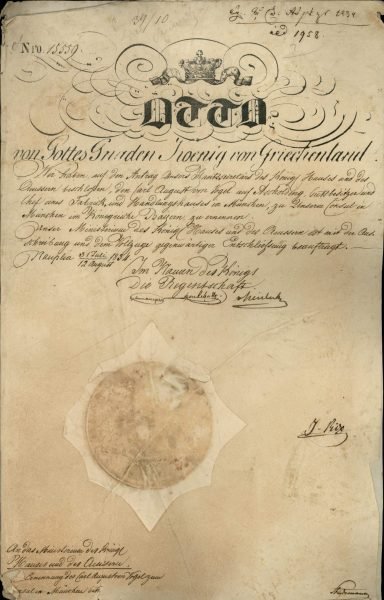 39/10
1958
Nro. 15559.
OTTO
von Gottes Gnaden Koenig von Griechenland.
Wir haben auf den Antrag Unseres Staatssecretärs des Königl. Hauses und des
Aeussern beschlossen, den Carl August von Vogel auf Ascholding, Gutsbesitzer und
Chef eines Fabrik und Handlungshauses in München, zu Unserem Consul in
München im Königreiche Bayern zu ernennen.
Unser Ministerium des Königl. Hauses und des Aeussern ist mit der Aus-
schreibung und dem Vollzuge gegenwärtiger Entschliessung beauftragt.
Nauplia 31 Juli 1834
12 August
Im Namen des Königs
Die Regentschaft.
An das Ministerium des Königl.
Hauses und des Aeussern.
Ernennung des Carl August von Vogel zum
Consul in München betr.